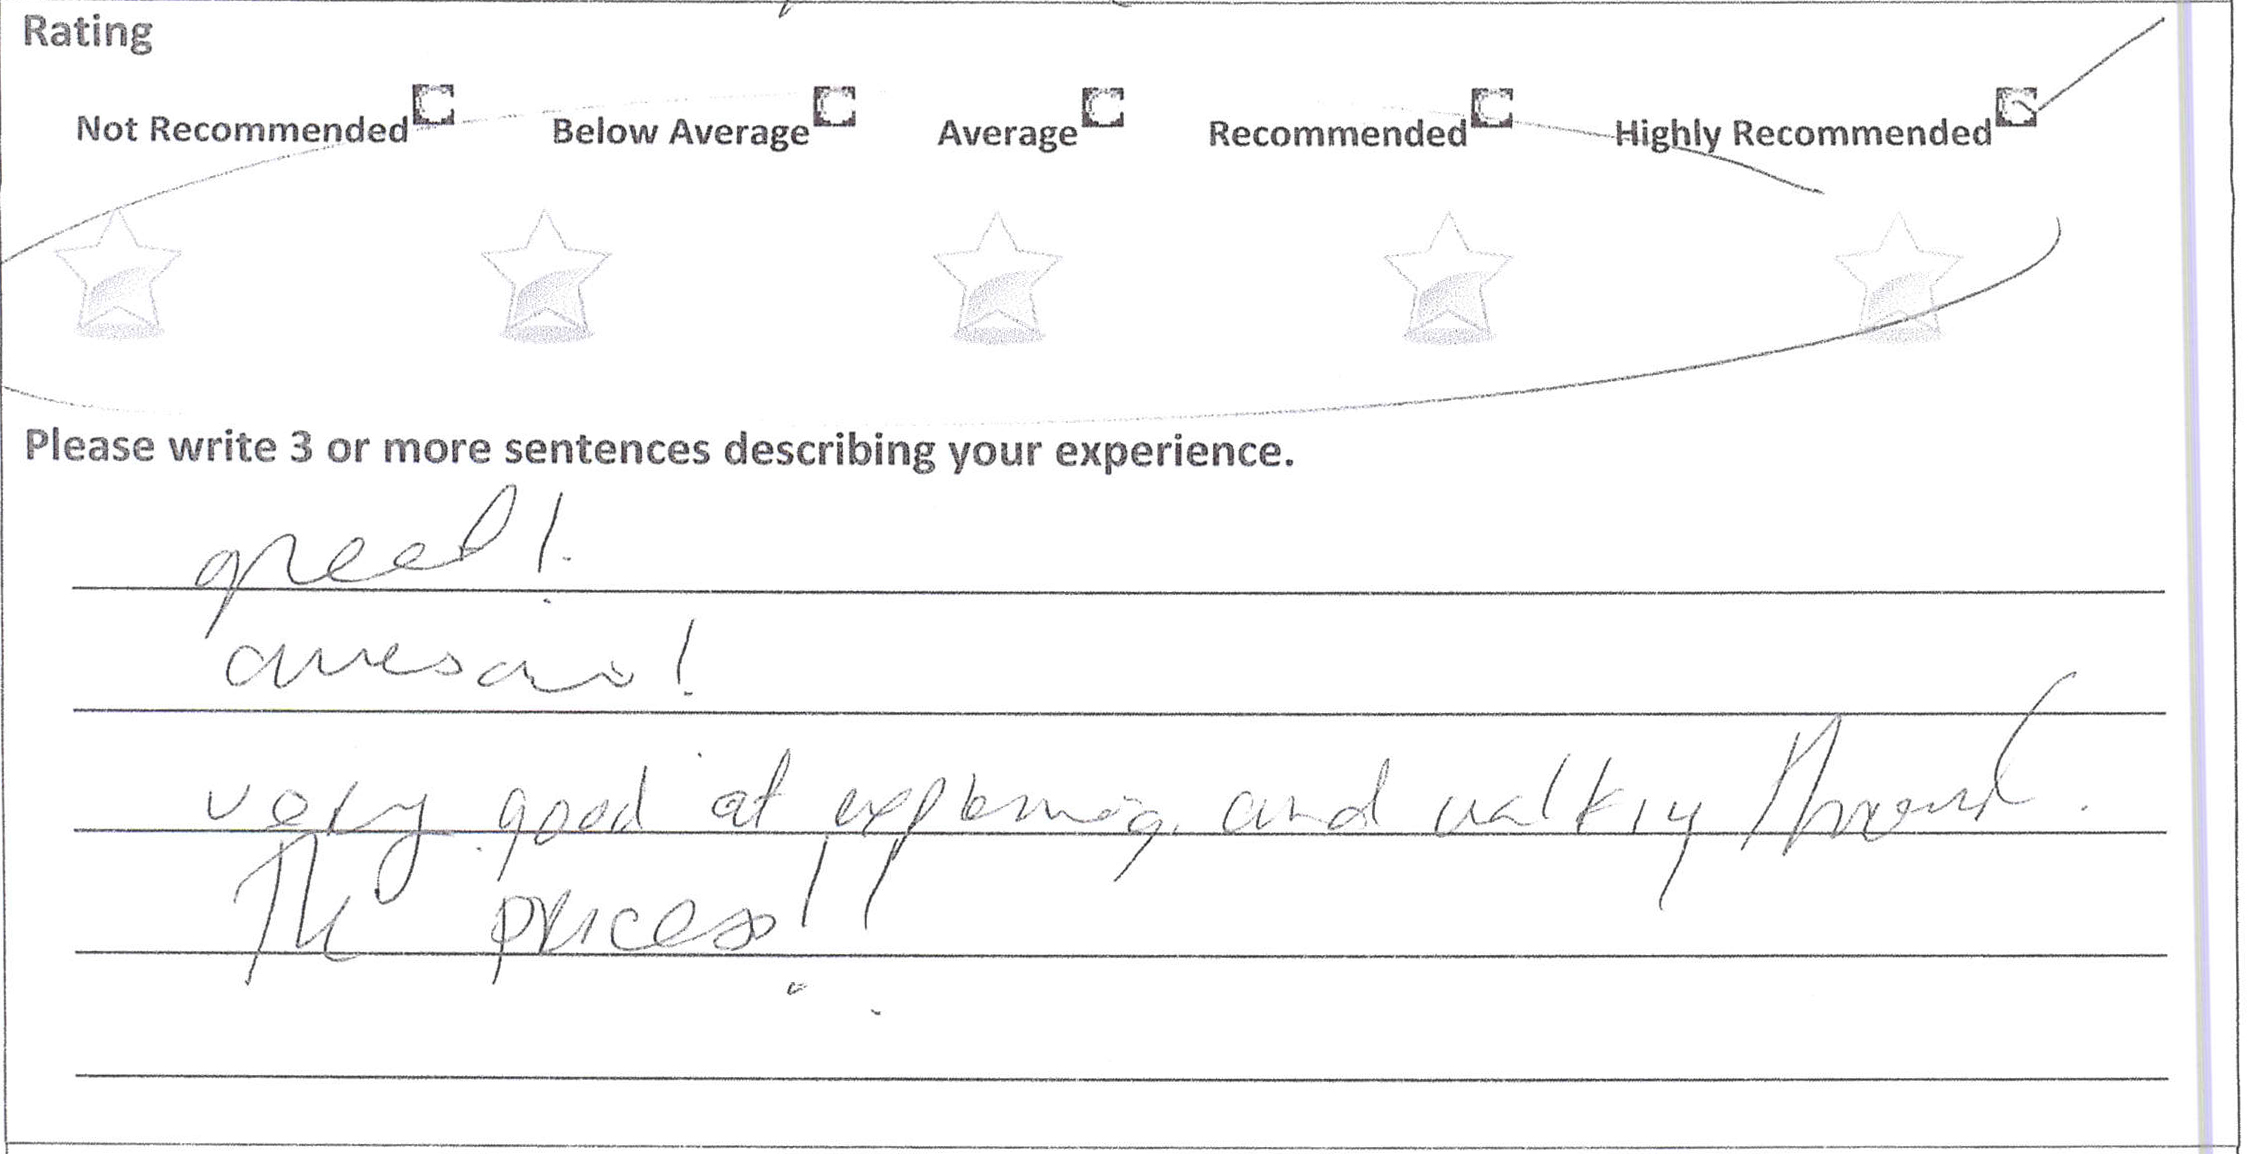 Rating
Not Recommended Below Average Average Recommended Highly Recommended
Please write 3 or more sentences describing your experience.
great!
awesome!
very good at explaining and walking through
the process!!